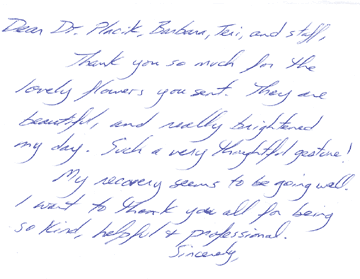 Dear Dr. Placik, Barbara, Teri, and staff,
Thank you so much for the
lovely flowers you sent. They are
beautiful, and really brightened
my day. Such a very thoughtful gesture!
My recovery seems to be going well.
I want to thank you all for being
so kind, helpful + professional.
Sincerely,